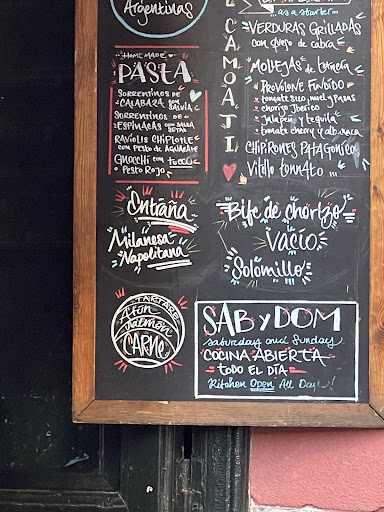 Argentinas
HOME MADE
PASTA
SORRENTINOS DE
CALABAZA con
SALVIA
SORRENTINOS DE
ESPINACAS con SALSA
SETAS
RAVIOLIS CHIPIONE
con PESTO de AGUACATE
GNOCCHI con TUCCO
PESTO ROJO
Entraña
Milanesa
Napolitana
TARTARES
Atún
Salmón
CARNE
CAMOATI
...as a starter...
VERDURAS GRILLADAS
con queso de cabra
MOLLEJAS de ternera
PROVOLONE FUNDIDO
tomate seco, miel y pasas
chorizo Iberico
Jalapeño y tequila
tomate cherry y albahaca
CHIPIRONES PATAGONICO
Vitello tonnato...
Bife de chorizo
Vacío
Solomillo
SAB y DOM
Saturday and Sunday
COCINA ABIERTA
TODO EL DÍA
Kitchen Open All Day